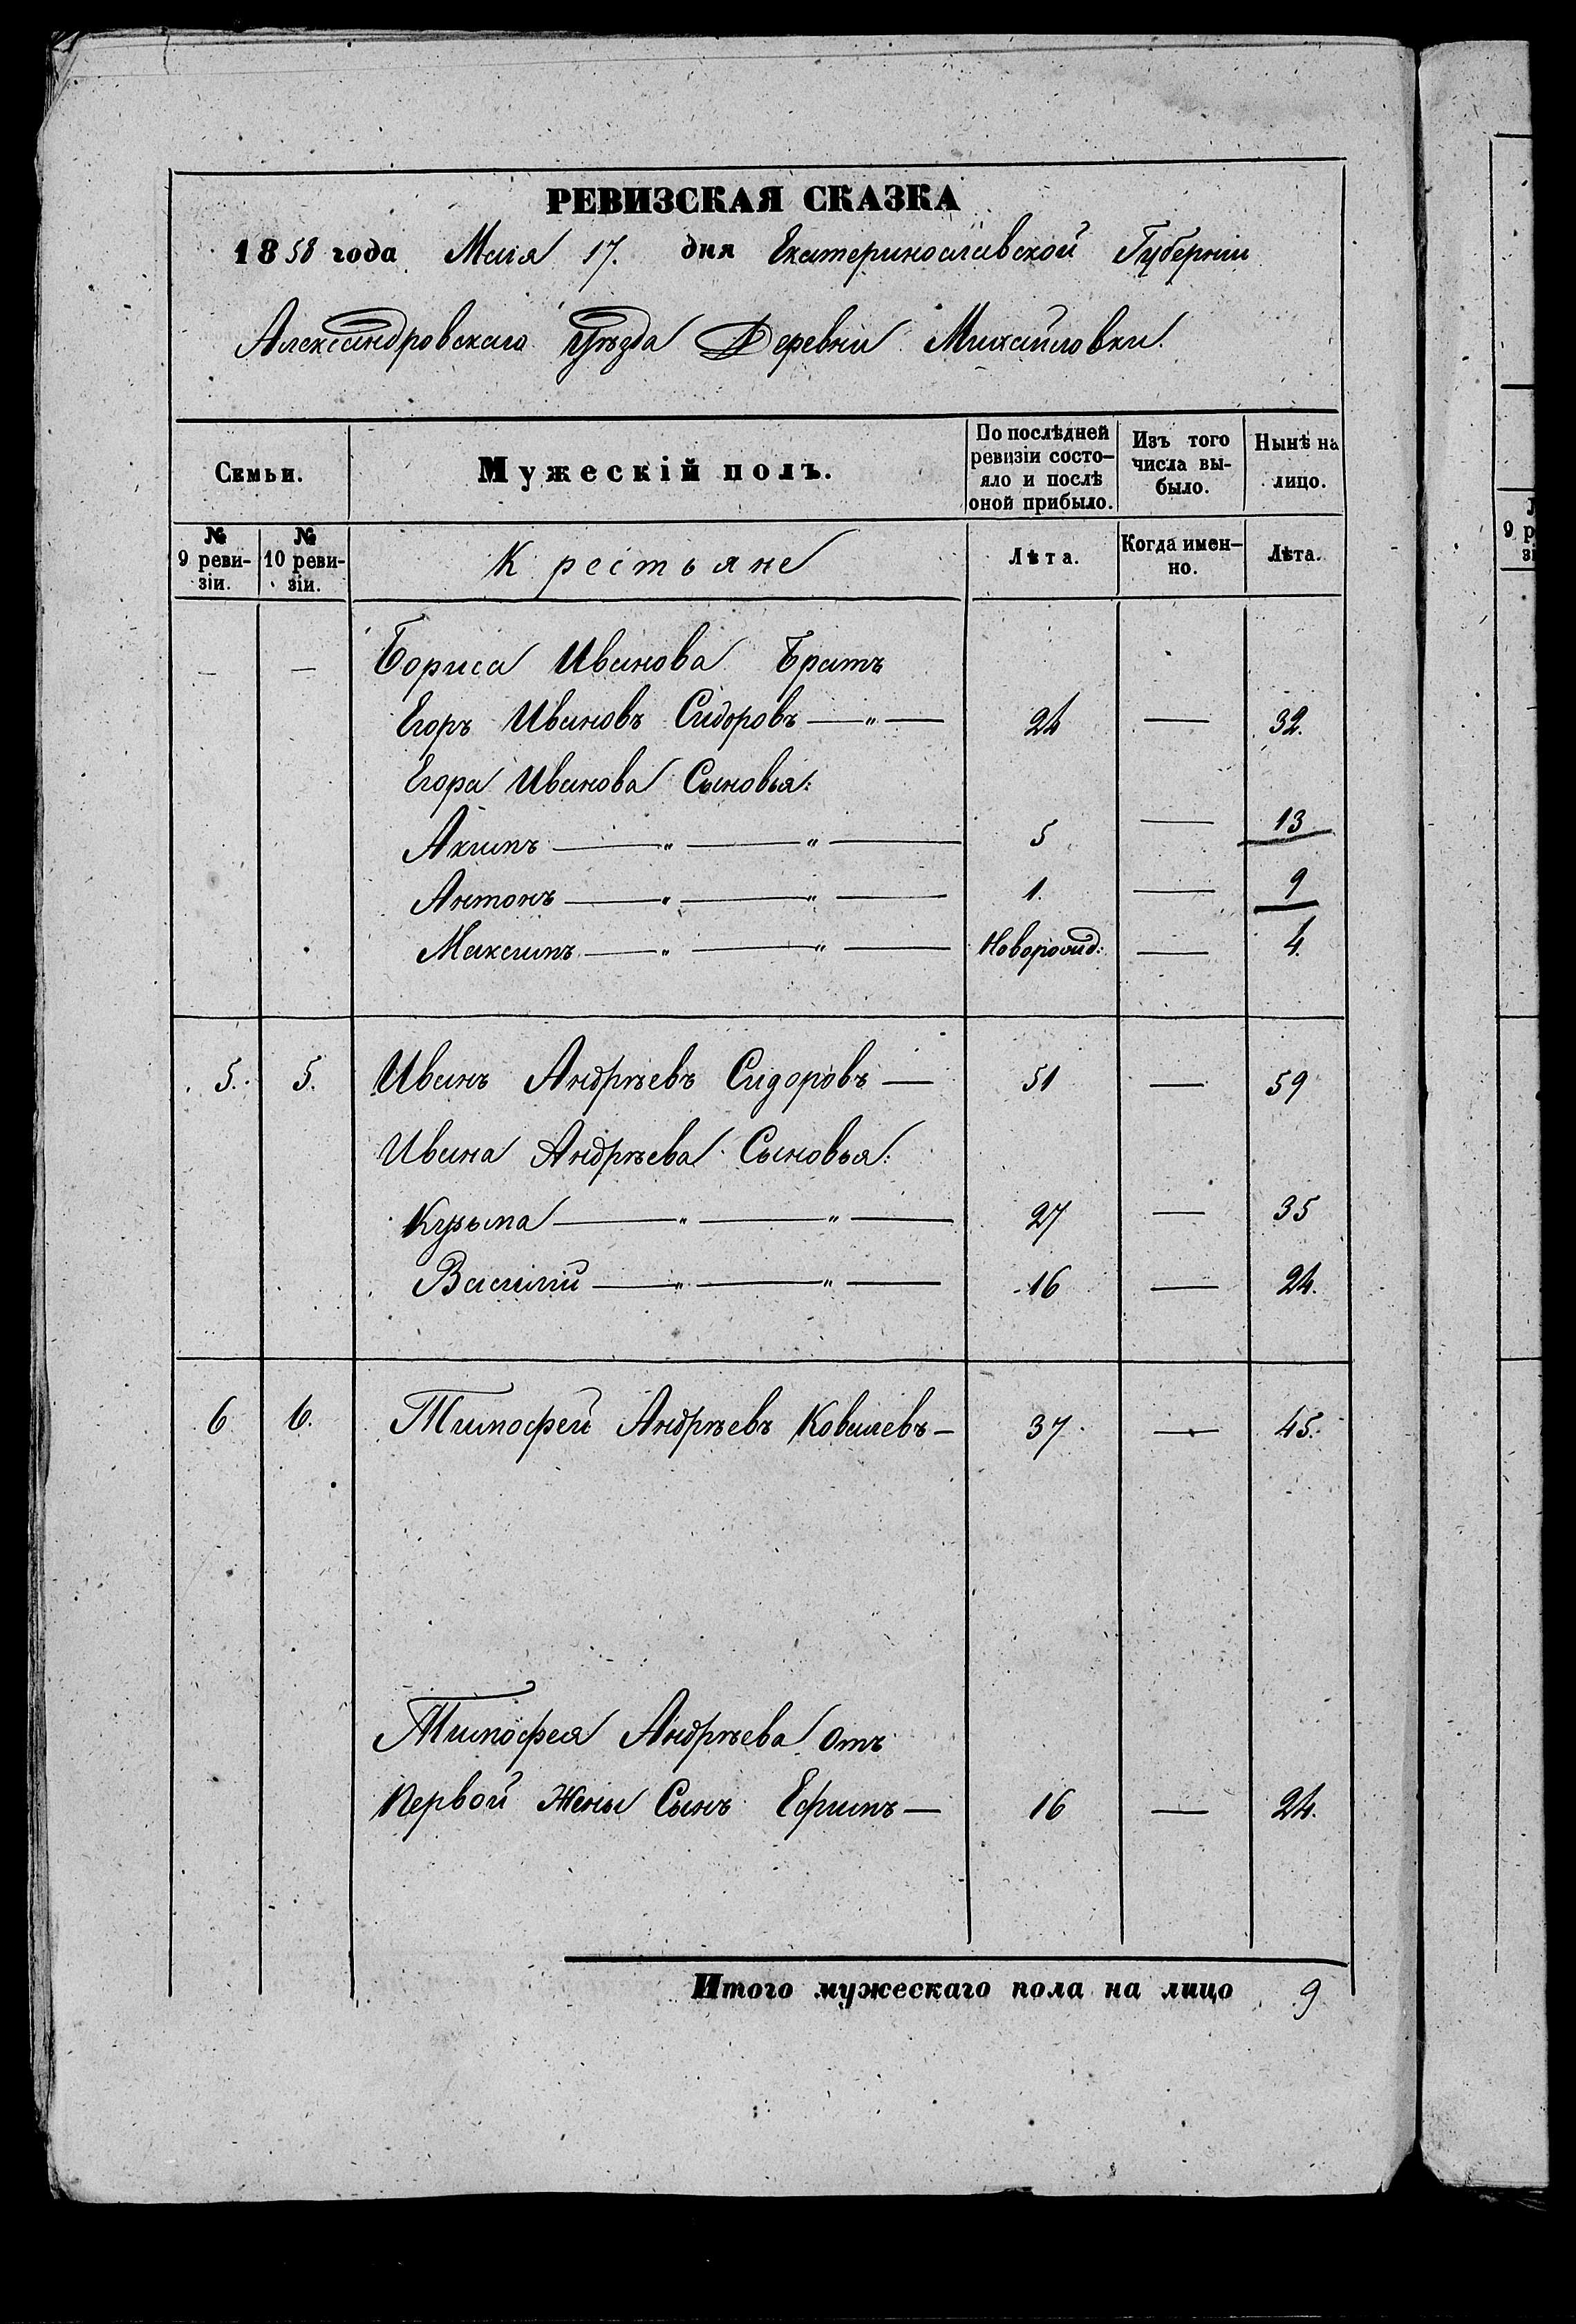 РЕВИЗСКАЯ СКАЗКА
1858 года Маія 17. дня Екатеринославской Губерніи
Александровскаго Уѣзда Деревни Михайловки.
Семьи.
Мужескій полъ.
По послѣдней ревизіи состо-
яло и послѣ
оной прибыло.
Изъ того
числа вы-
было.
Нынѣ на
лицо.
№ 9 реви-
зіи.
№ 10 реви-
зіи.
Крестьяне
Лѣта.
Когда имен-
но.
Лѣта.
— — Бориса Иванова Братъ
Егоръ Ивановъ Сидоровъ — " — 24 — 32.
Егора Иванова Сыновья:
Акимъ — " — " — 5 — 13
Антонъ — " — " — 1. — 9
Максимъ — " — " — Новорожд: — 4.
5. 5. Иванъ Андрѣевъ Сидоровъ — 51 — 59
Ивана Андрѣева Сыновья:
Кузьма — " — " — 27 — 35
Василій — " — " — 16 — 24.
6 6. Тимофей Андрѣевъ Ковалевъ — 37 — 45.
Тимофея Андрѣева отъ
первой Жены Сынъ Ефимъ — 16 — 24.
Итого мужескаго пола на лицо 9
№
9 р
зі